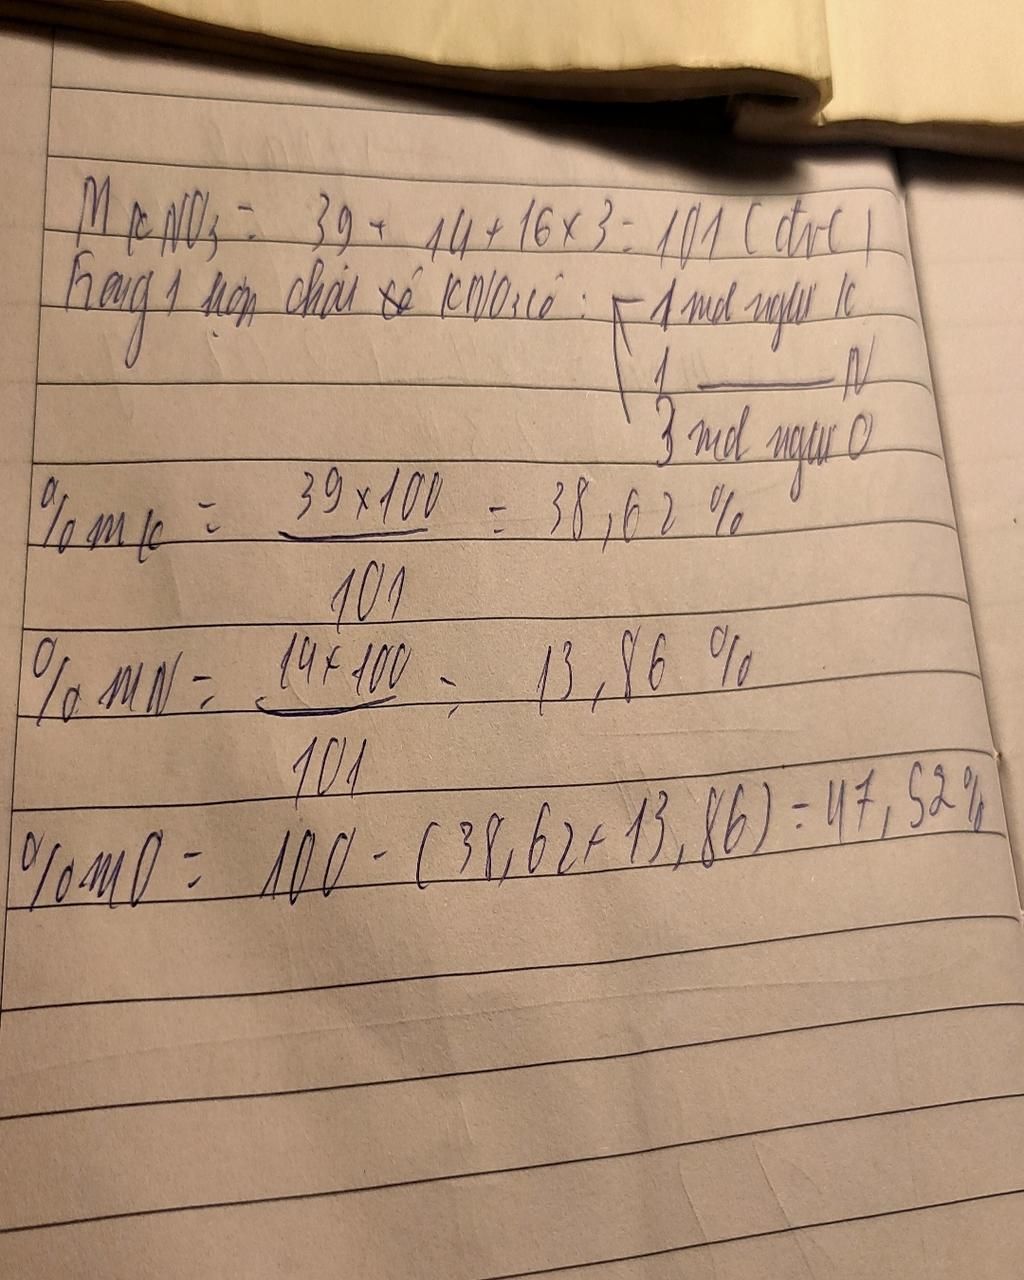 M KNO3 = 39 + 14 + 16 x 3 = 101 (đvC)
Trong 1 mol chất KNO3 có : 1 mol ngtử K
1 ——— N
3 mol ngtử O
%mK = 39 x 100 / 101 = 38,62 %
%mN = 14 x 100 / 101 = 13,86 %
%mO = 100 - (38,62 + 13,86) = 47,52%